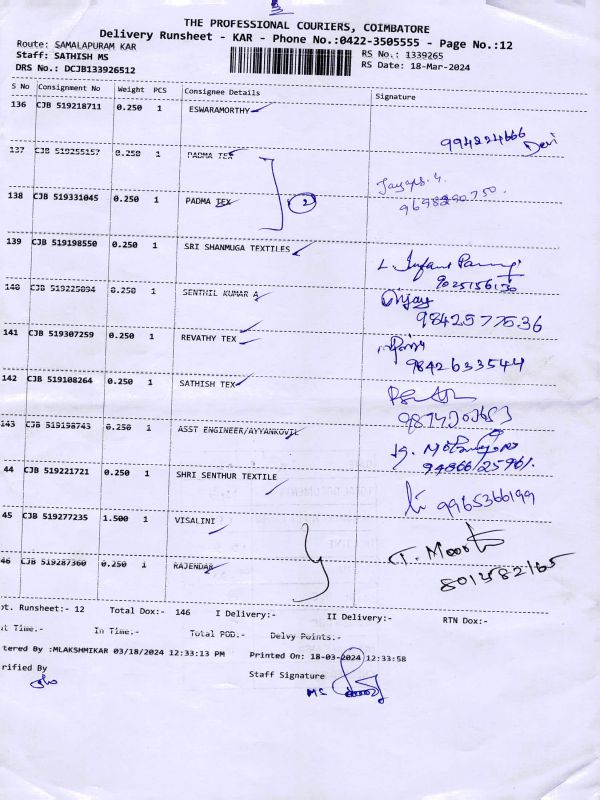 THE PROFESSIONAL COURIERS, COIMBATORE
Delivery Runsheet - KAR - Phone No.:0422-3505555 - Page No.:12
Route: SAMALAPURAM KAR
RS No.: 1339265
Staff: SATHISH MS
RS Date: 18-Mar-2024
DRS No.: DCJB133926512
S No Consignment No Weight PCS Consignee Details Signature
136 CJB 519218711 0.250 1 ESWARAMORTHY
994224666 Devi
137 CJB 519255157 0.250 1 PADMA TEX
138 CJB 519331045 0.250 1 PADMA TEX 2
139 CJB 519198550 0.250 1 SRI SHANMUGA TEXTILES
140 CJB 519225894 0.250 1 SENTHIL KUMAR A
Vijay
141 CJB 519307259 0.250 1 REVATHY TEX
9842633544
142 CJB 519108264 0.250 1 SATHISH TEX
143 CJB 519198743 0.250 1 ASST ENGINEER/AYYANKOVIL
44 CJB 519221721 0.250 1 SHRI SENTHUR TEXTILE
9965366199
45 CJB 519277235 1.500 1 VISALINI
46 CJB 519287360 0.250 1 RAJENDAR
ot. Runsheet:- 12 Total Dox:- 146 I Delivery:- II Delivery:- RTN Dox:-
ut Time:- In Time:- Total POD.- Delvy Points:-
tered By :MLAKSHMIKAR 03/18/2024 12:33:13 PM Printed On: 18-03-2024 12:33:58
rified By
Staff Signature
MS